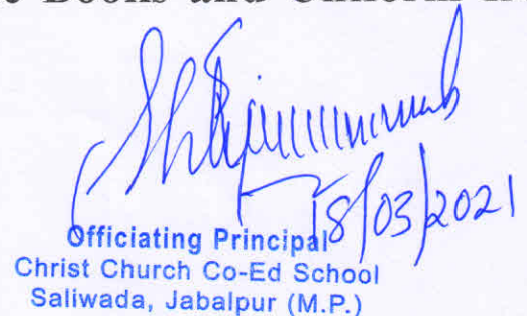 Books and Uniform
18/03/2021
Officiating Principal
Christ Church Co-Ed School
Saliwada, Jabalpur (M.P.)